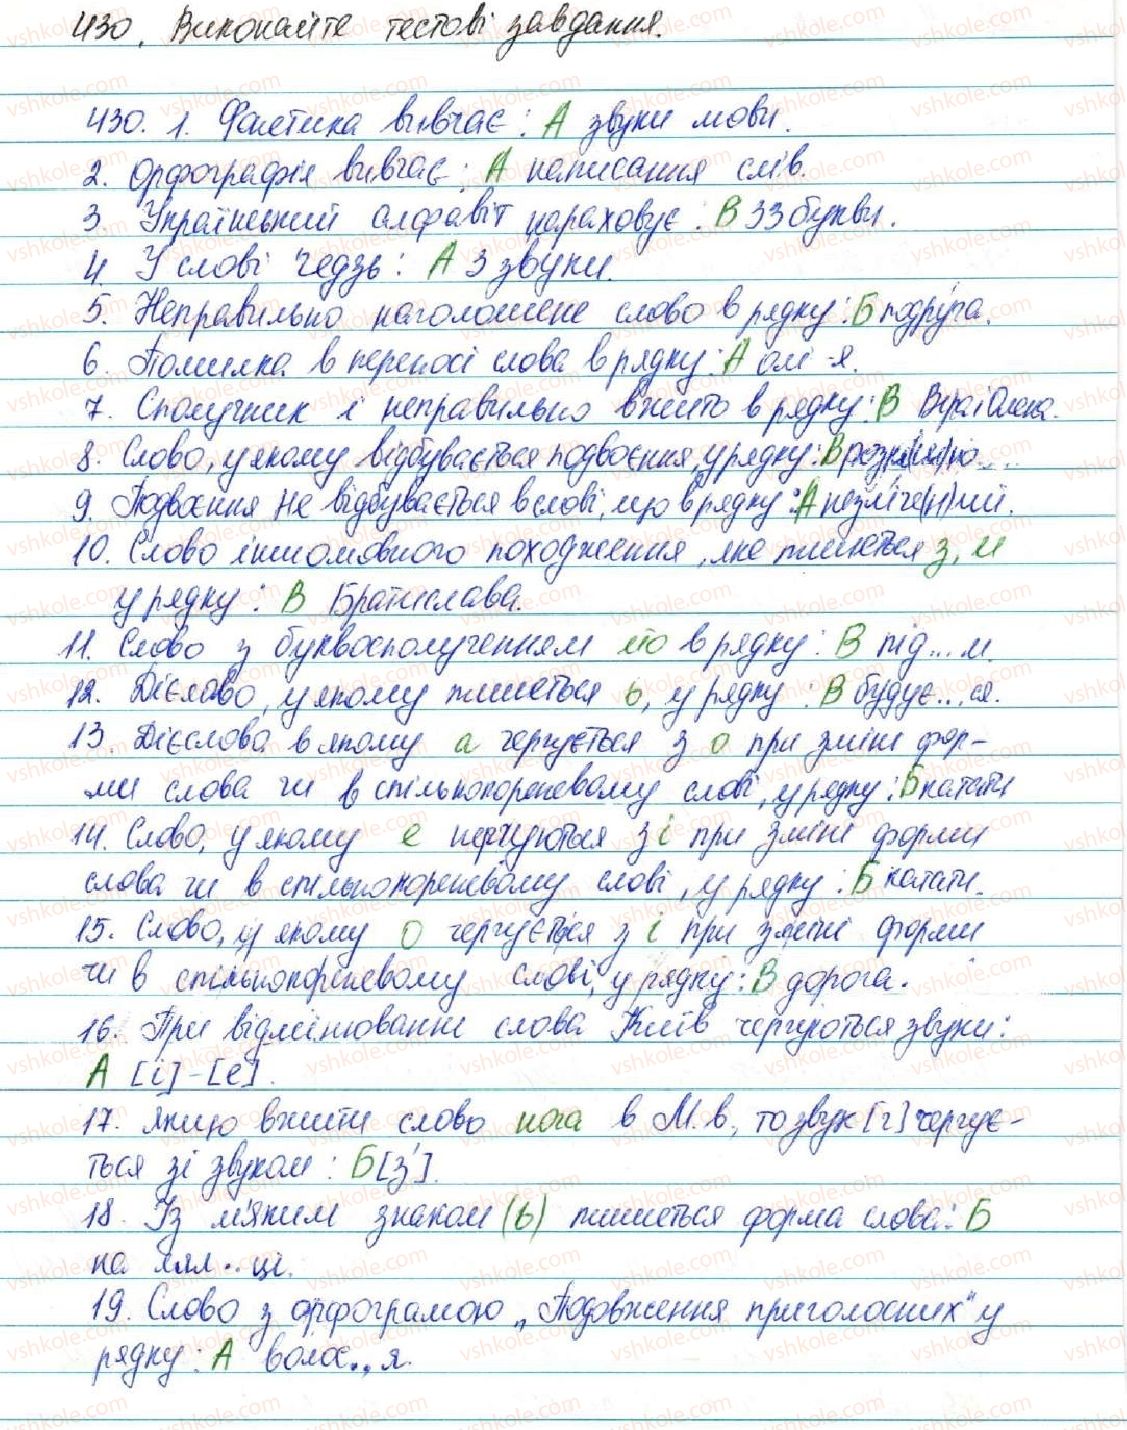 430. Виконайте тестові завдання.
430. 1. Фонетика вивчає: А звуки мови.
2. Орфографія вивчає: А написання слів.
3. Український алфавіт нараховує: В 33 букви.
4. У слові ґедзь: А 3 звуки.
5. Неправильно наголошене слово в рядку: Б подру́га.
6. Помилка в переносі слова в рядку: А олі-я.
7. Сполучник і неправильно вжито в рядку: В Віра і Олена.
8. Слово, у якому відбувається подвоєння, у рядку: В
9. Подвоєння не відбувається в слові, що в рядку: А незліче(н)ний.
10. Слово іншомовного походження, яке пишеться з, и
у рядку: В Братислава.
11. Слово з буквосполученням йо в рядку: В під...м.
12. Дієслово, у якому пишеться ь, у рядку: В будує...ся.
13. Дієслова в якому а чергується з о при зміні фор-
ми слова чи в спільнокореневому слові, у рядку: Б катати
14. Слово, у якому е чергується з і при зміні форми
слова чи в спільнокореневому слові, у рядку: Б
15. Слово, у якому о чергується з і при зміні форми
чи в спільнокореневому слові, у рядку: В дорога.
16. При відмінюванні слова Київ чергуються звуки:
А [і]-[е].
17. Якщо вжити слово нога в М.в., то звук [г] чергує-
ться зі звуком: Б [з'].
18. Із м'яким знаком (ь) пишеться форма слова: Б
на лял..ці.
19. Слово з орфограмою „Подовження приголосних" у
рядку: А волос..я.
vshkole.com